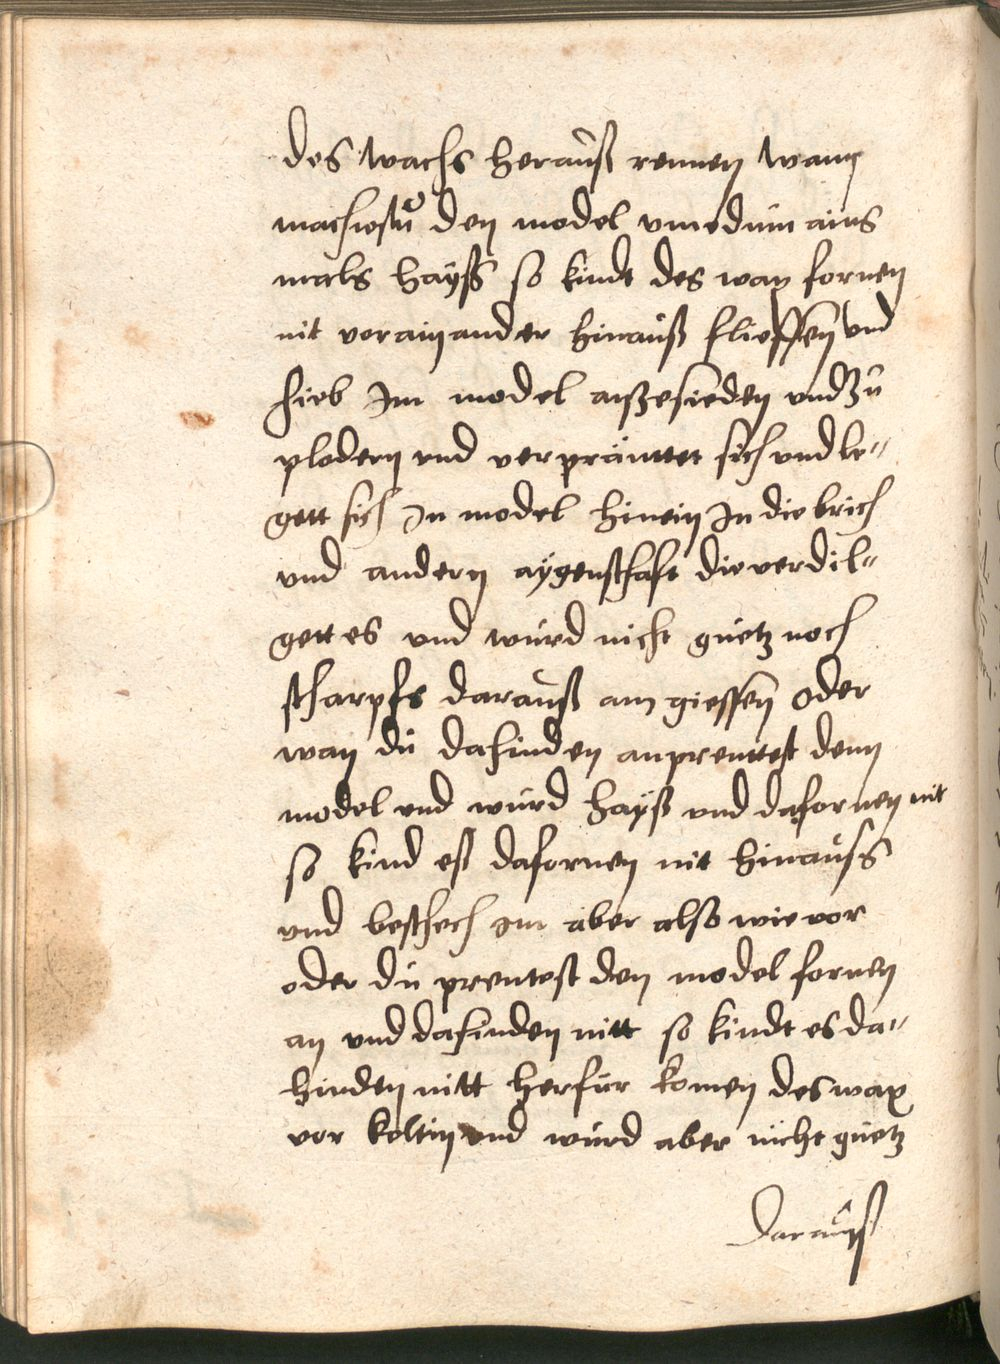 des wachs herauß rennen wann
machestu den model umedum ains
mals hayß so kindt des wax fornen
nit vor ain ander hinauß fliessen und
hieb Im model anzesieden und zu
plodern und verpräntet sich und le„
gett sich In model hinein In die brich
und andern aygenschaft die verdil„
gett es und würd nicht guetz noch
scharpfs darauß am giessen oder
wan du dahinden anprentest denn
model und würd hayß und dafornen nit
so kind eß dafornen nit hinauß
und beschech Im aber also wie vor
oder du prentest den model fornen
an und dahinden nitt so kindt es da„
hinden nitt herfür komen des wax
vor keltin und würd aber nicht guetz
darauß